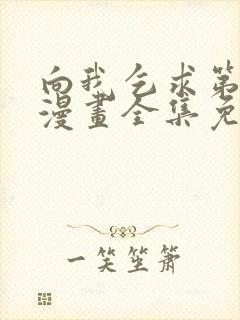 向我乞求第
漫畫全集免
一笑坐箫